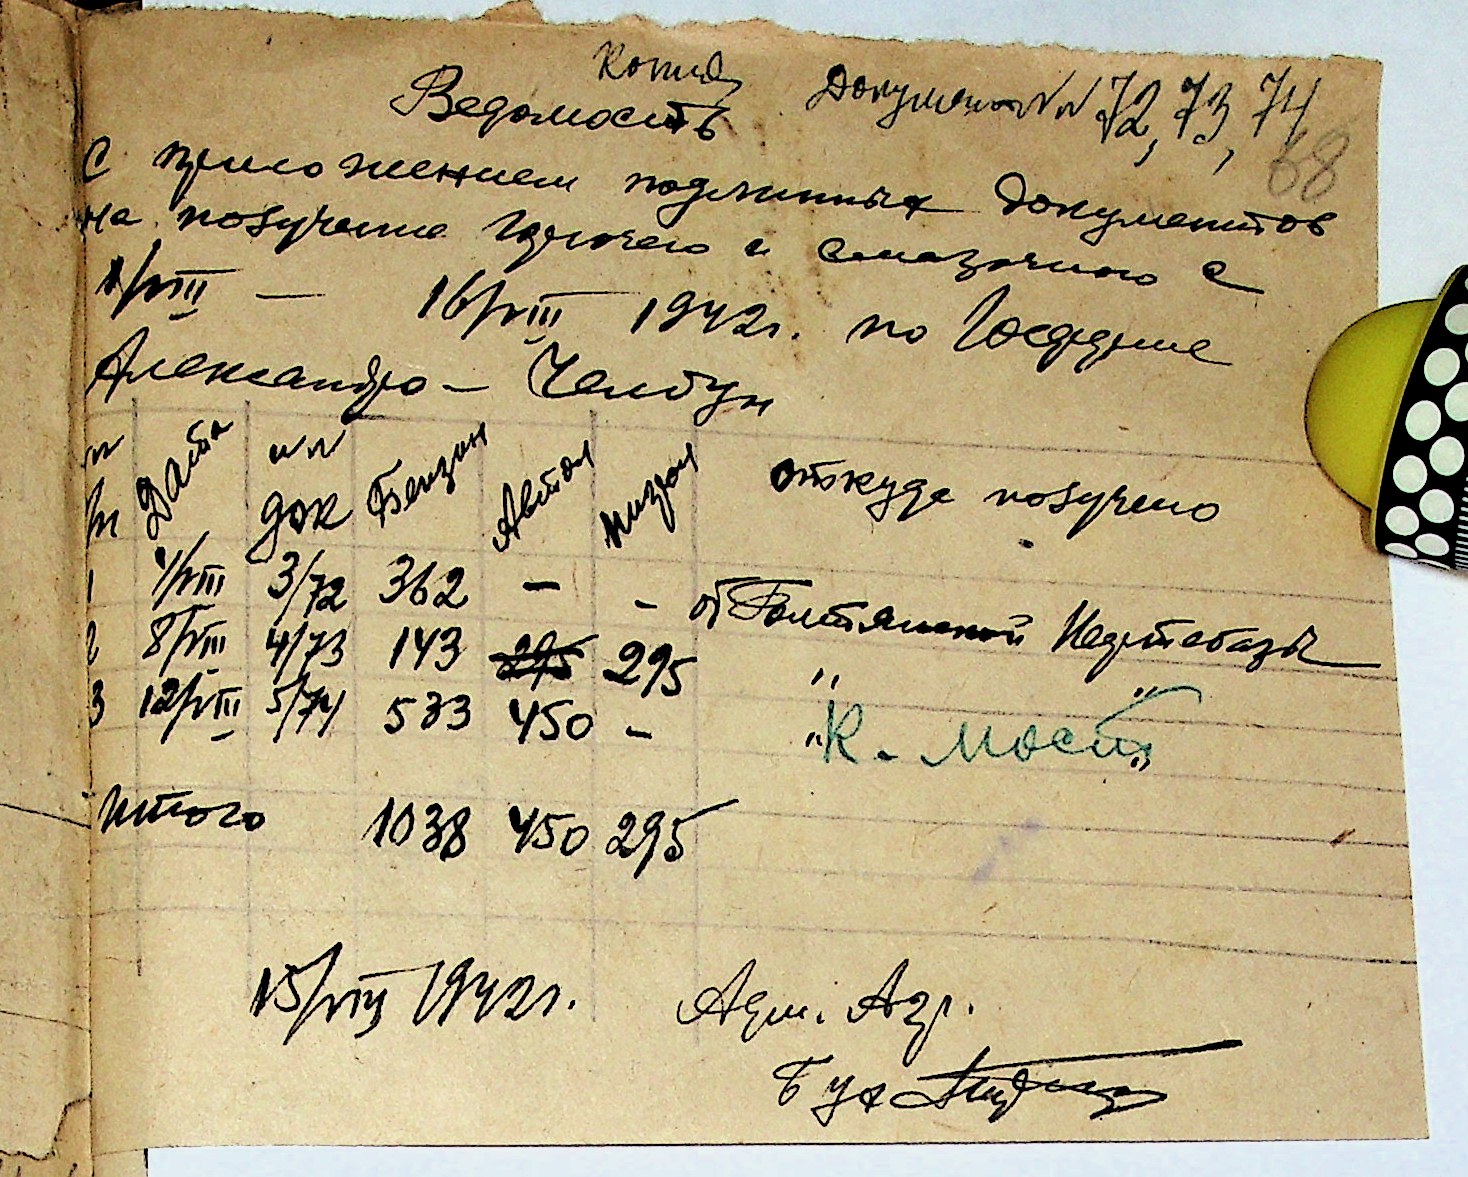 Копия Документы №№ 72, 73, 74
Ведомость
68
С приложением подлинных документов
на получение горючего и смазочного с
1/VIII — 16/VIII 1942г. по Госферме
Александро — Челбун
№ Дата №№ док Бензин Автол Мизол откуда получено
1 1/VIII 3/72 362 — — от Голтянской Нефтебазы
2 8/VIII 4/73 143 295 295 „ „
3 12/VIII 5/74 533 450 — „ К. Мост „
Итого 1038 450 295
15/VIII 1942г. Адм. Агр.
Бух